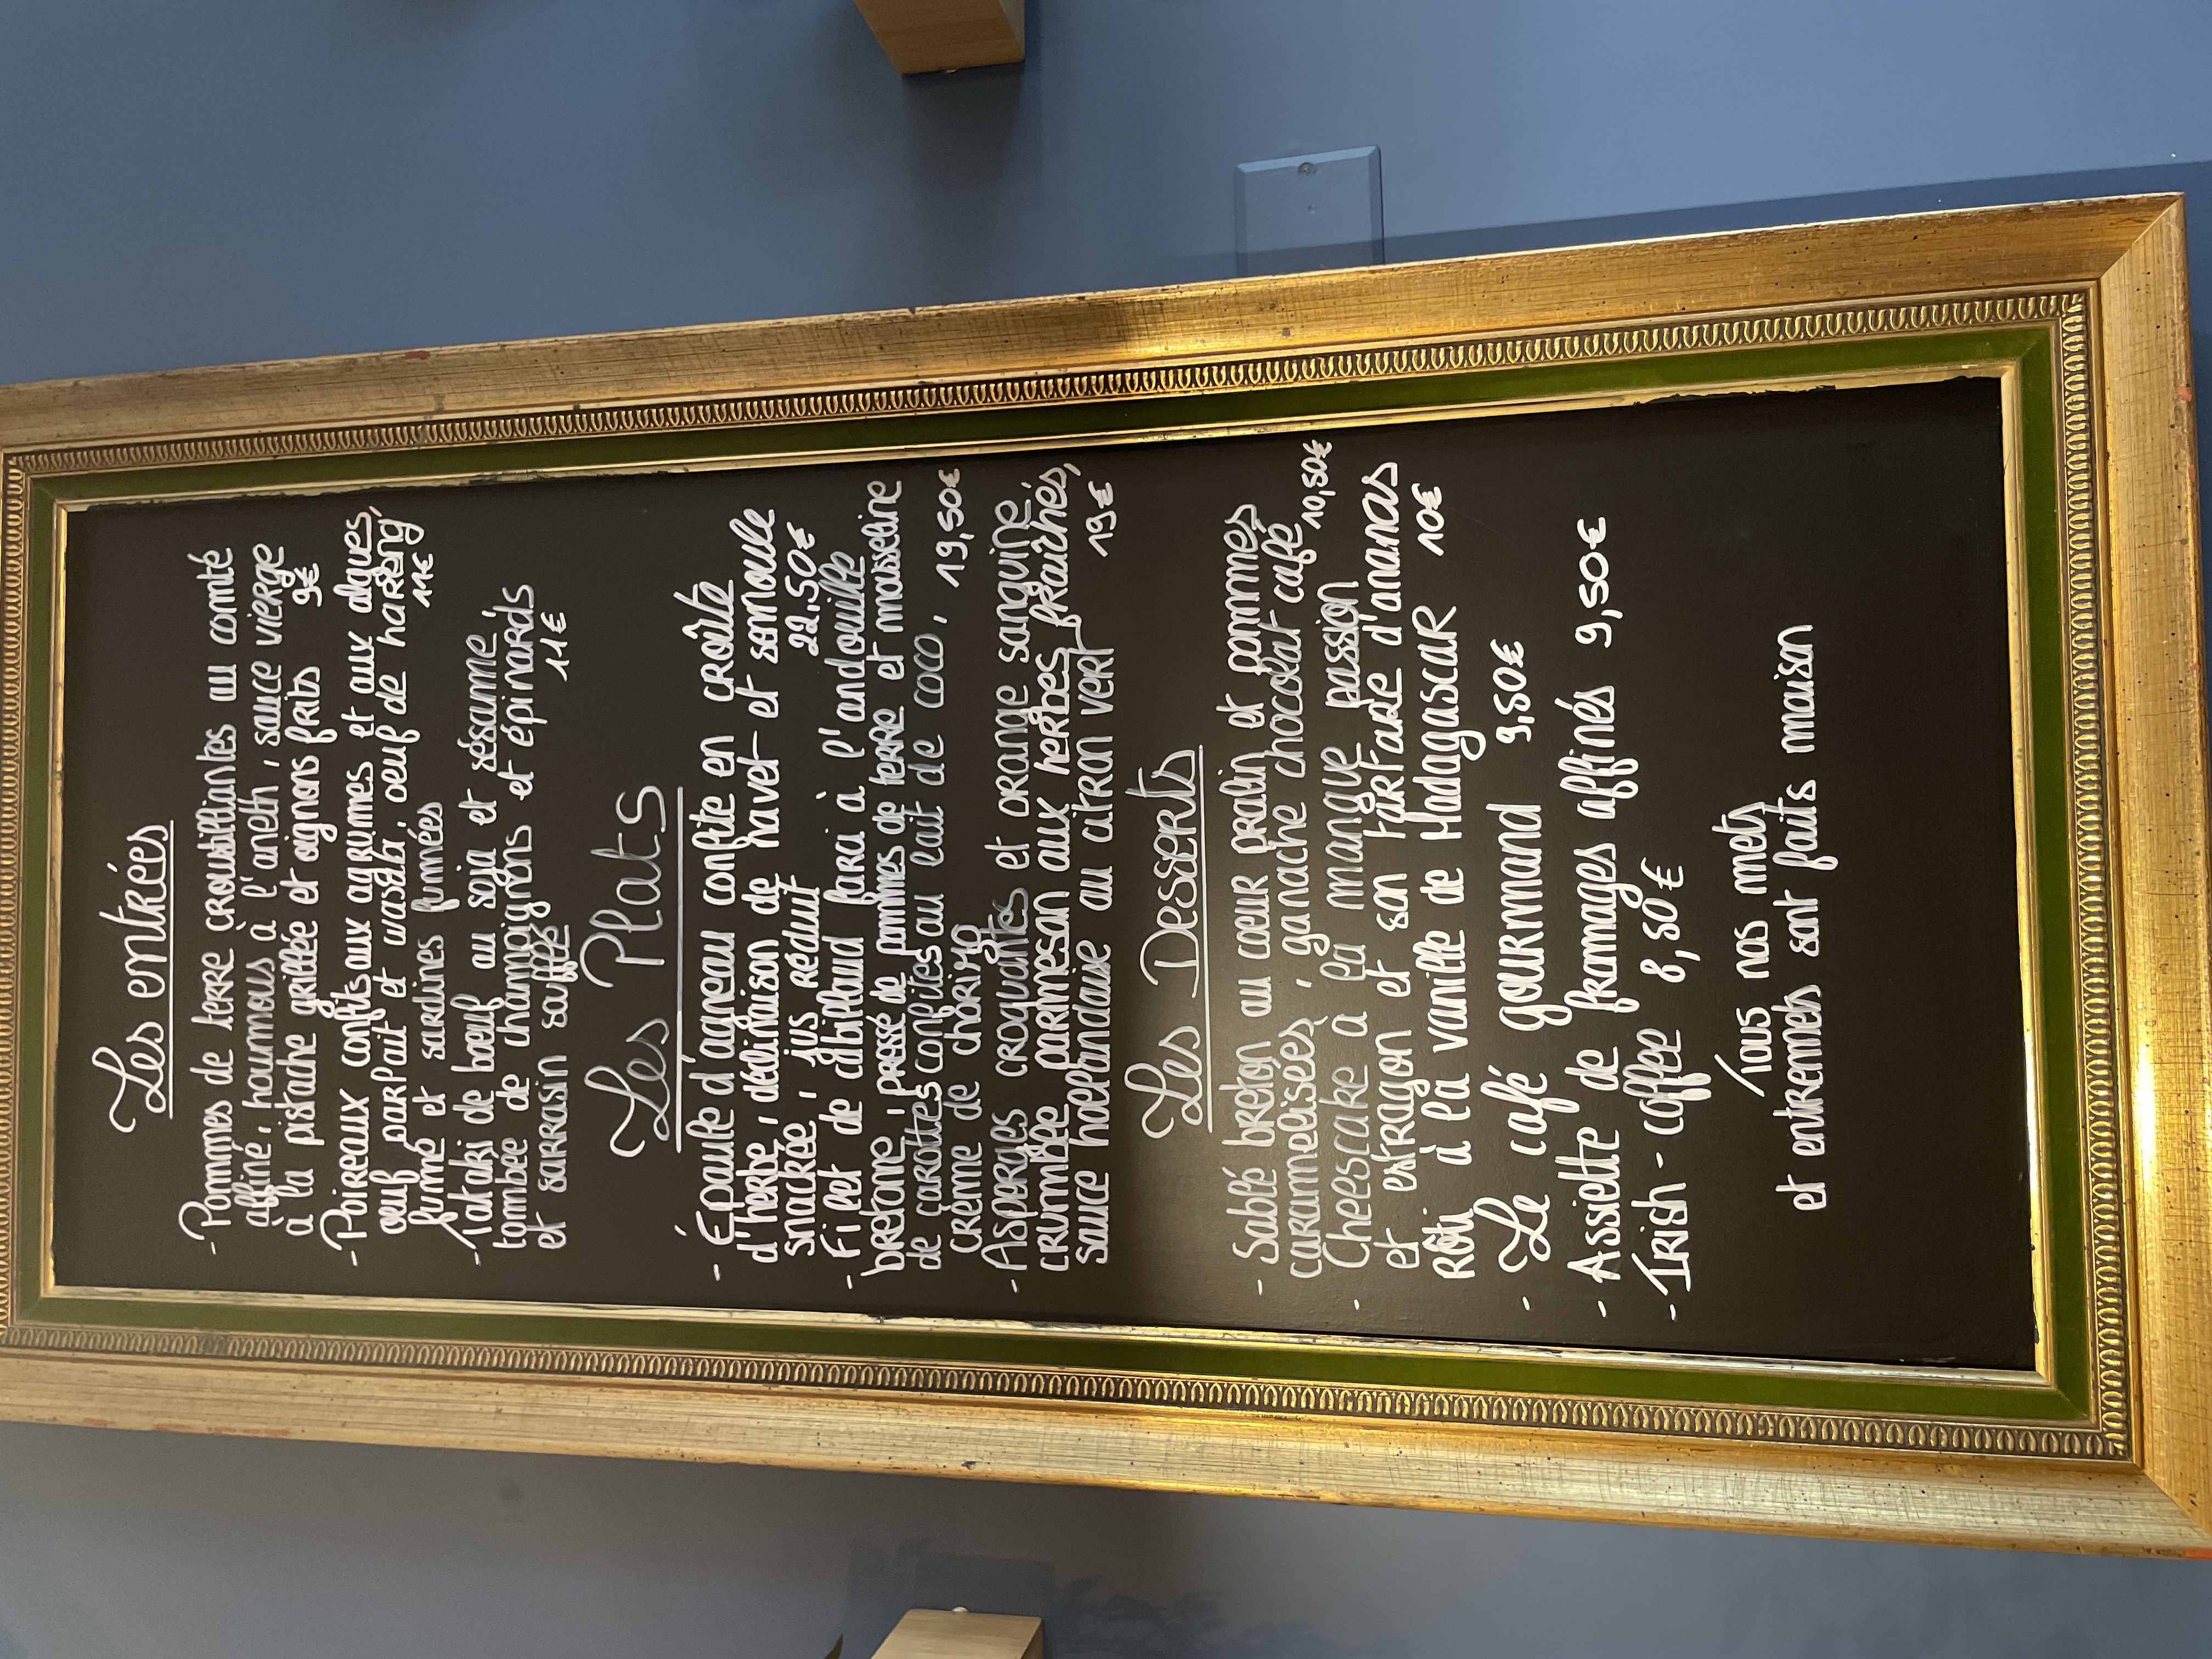 Les entrées
- Pommes de terre croustillantes au comté
affiné, houmous à l'aneth, sauce vierge
à la pistache grillée et oignons frits 9€
- Poireaux confits aux agrumes et aux algues,
oeuf parfait et wasabi, oeuf de hareng
fumé et sardines fumées 11€
- Tataki de boeuf au soja et sésame,
tombée de champignons et épinards
et sarrasin soufflé 11€
Les Plats
- Épaule d'agneau confite en croûte
d'herbe, déclinaison de navet et semoule
snackée, jus réduit 22,50€
- Filet de cabillaud farci à l'andouille
bretonne, pressé de pommes de terre et mousseline
de carottes confites au lait de coco,
crème de chorizo 19,50€
- Asperges croquantes et orange sanguine,
crumble parmesan aux herbes fraîches,
sauce hollandaise au citron vert 19€
Les Desserts
- Sablé breton au coeur pralin et pommes
caramelisées, ganache chocolat café 10,50€
- Cheescake à la mangue passion
et estragon et son tartare d'ananas
Rôti à la vanille de Madagascar 10€
- Le café gourmand 9,50€
- Assiette de fromages affinés 9,50€
- Irish - coffee 8,50€
Tous nos mets
et entremets sont faits maison